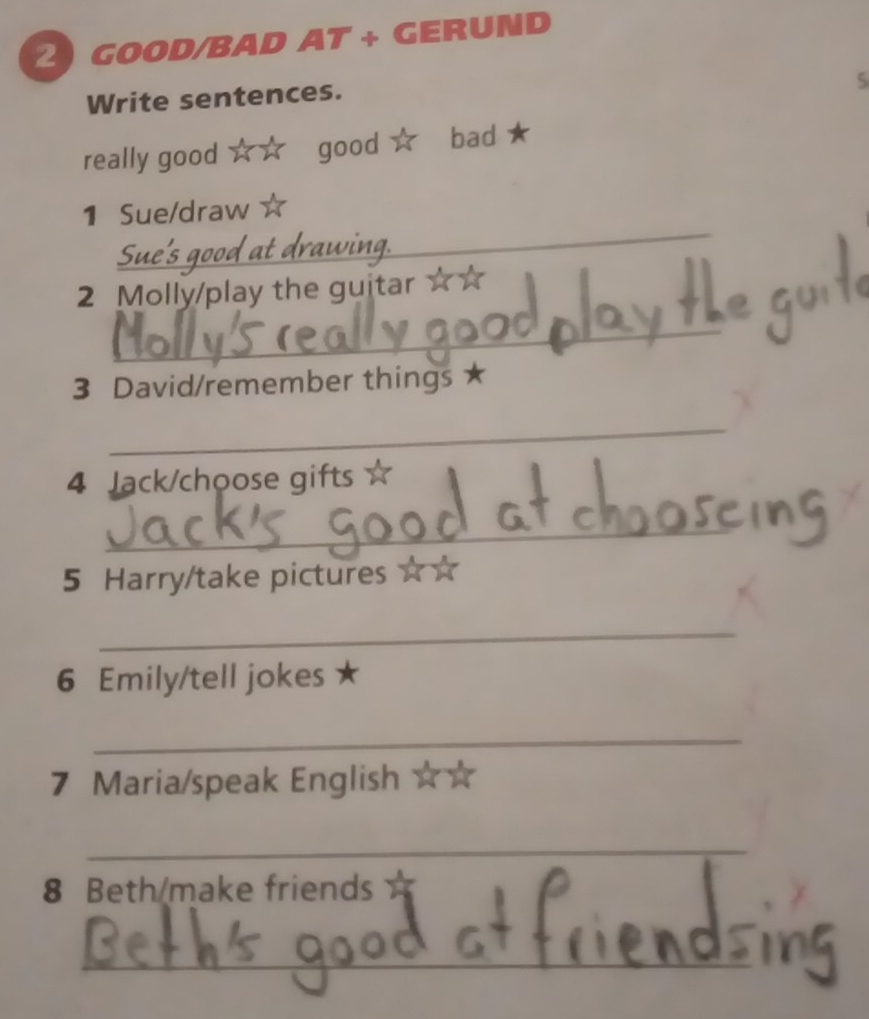 2 GOOD/BAD AT + GERUND
Write sentences.
really good ☆☆ good ☆ bad ★
1 Sue/draw ☆
Sue's good at drawing.
2 Molly/play the guitar ☆☆
Molly's really good play the guita
3 David/remember things ★
4 Jack/choose gifts ☆
Jack's good at chooseing
5 Harry/take pictures ☆☆
6 Emily/tell jokes ★
7 Maria/speak English ☆☆
8 Beth/make friends ☆
Beth's good at friendsing